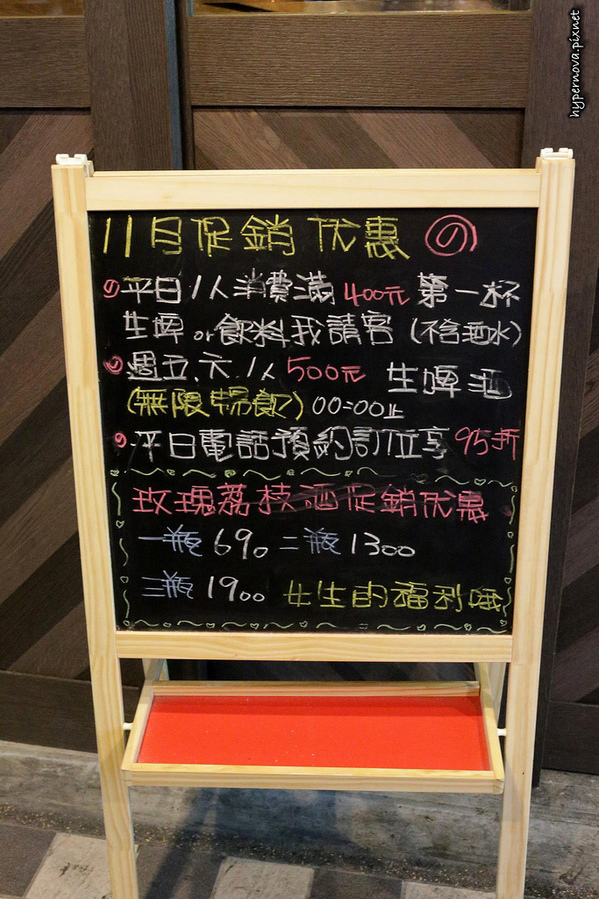 11月促銷优惠 の
の平日1人消費滿400元 第一杯
生啤or飲料我請客(不含酒水)
の週五、六1人500元 生啤酒
(無限暢飲)00:00止
の平日電話預約訂位享95折
玫瑰荔枝酒促銷优惠
一瓶690 二瓶1300
三瓶1900 女生的福利哦
hypernova.pixnet